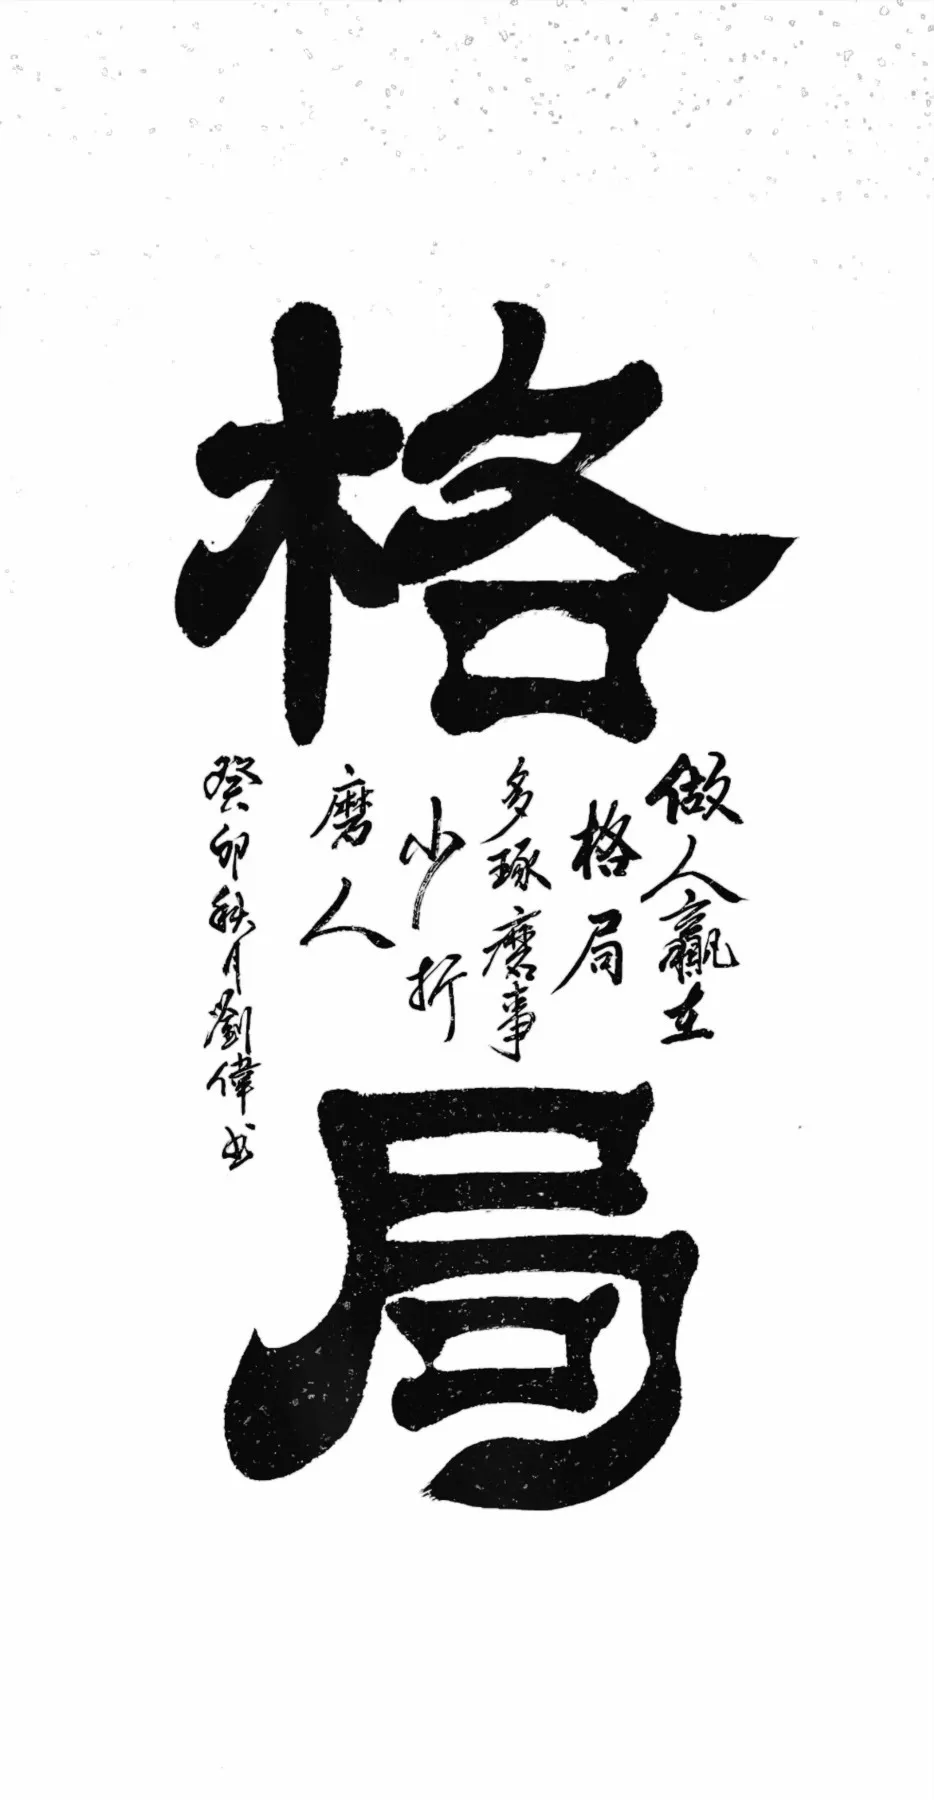 格
局
做人贏在
格局
多琢磨事
少折
磨人
癸卯秋月劉偉书